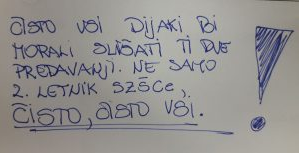 ČISTO VSI DIJAKI BI
MORALI SLIŠATI TI DVE
PREDAVANJI. NE SAMO
2. LETNIK SZŠCe,
ČISTO, ČISTO VSI. !